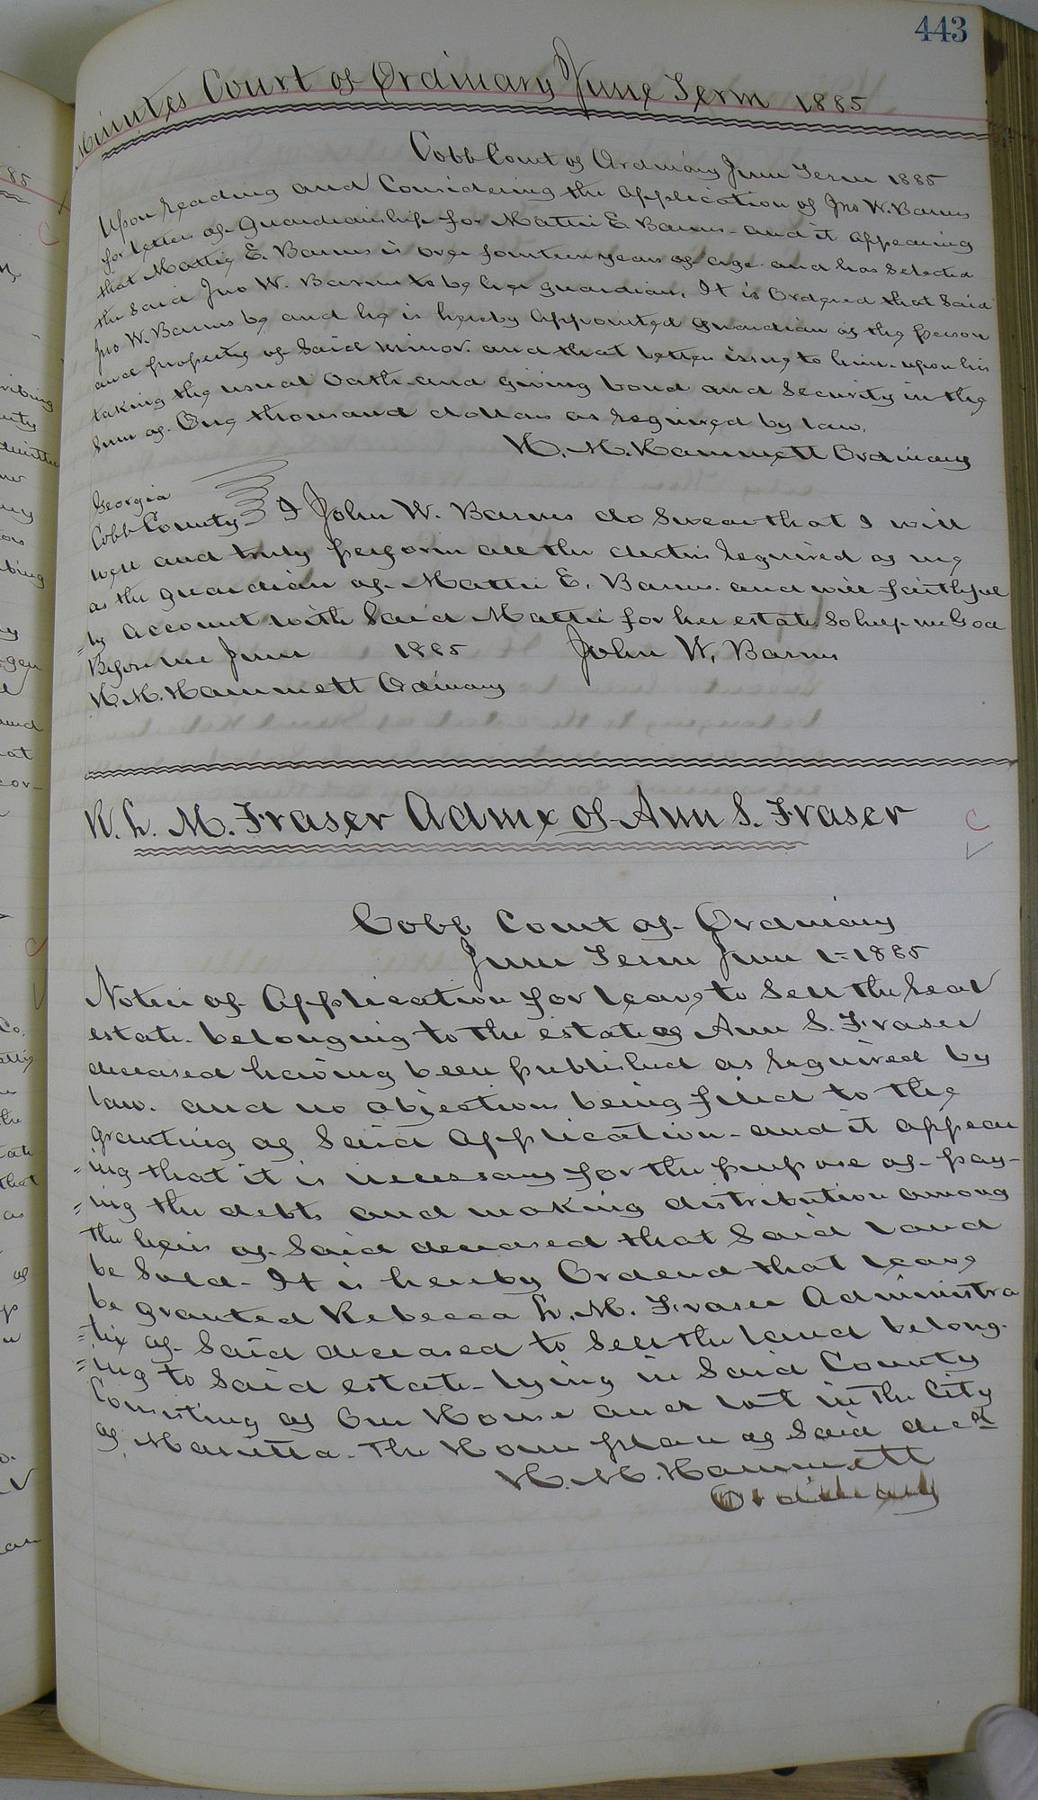 443
Minutes Court of Ordinary June Term 1885
Cobb Court of Ordinary June Term 1885
Upon reading and Considering the application of Jno W. Barnes
for letters of Guardianship for Mattie E Barnes and it appearing
that Mattie E. Barnes is over fourteen years of age and has Selected
the said Jno W. Barnes to be her guardian, It is Ordered that Said
Jno W. Barnes be and he is hereby appointed guardian of the person
and property of Said minor. and that letters issue to him upon his
taking the usual Oath and giving bond and Security in the
Sum of One thousand dollars as required by law.
H. M. Hammett Ordinary
Georgia
Cobb County I John W. Barnes do Swear that I will
well and truly perform all the duties required of me
as the guardian of Mattie E. Barnes. and will faithful
=ly account with Said Mattie for her estate So help me God
Before me June 1885 John W. Barnes
H. M. Hammett Ordinary
R. L. M. Fraser Admx of Ann S. Fraser
C
Cobb Court of Ordinary
June Term June 1= 1885
Notice of application for leave to Sell the real
estate belonging to the estate of Ann S. Fraser
deceased having been published as required by
law. and no objections being filed to the
granting of Said application and it appear
=ing that it is necessary for the purpose of pay-
=ing the debts and making distribution among
the heirs of Said deceased that Said land
be Sold - It is hereby Ordered that leave
be granted Rebecca L. M. Fraser Administra
=trix of Said deceased to Sell the land belong-
=ing to Said estate lying in Said County
Consisting of One House and lot in the City
of Marietta. The Home place of Said decd
H. M. Hammett
Ordinary